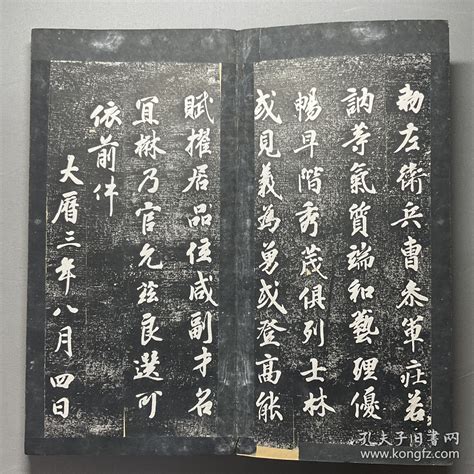 勑左衛兵曹叅軍莊若
訥等氣質端和藝理優
暢早階秀茂俱列士林
或見義為勇或登高能
賦擢居品位咸副才名
宜楙乃官允茲良選可
依前件
大曆三年八月四日
孔夫子旧书网
www.kongfz.com